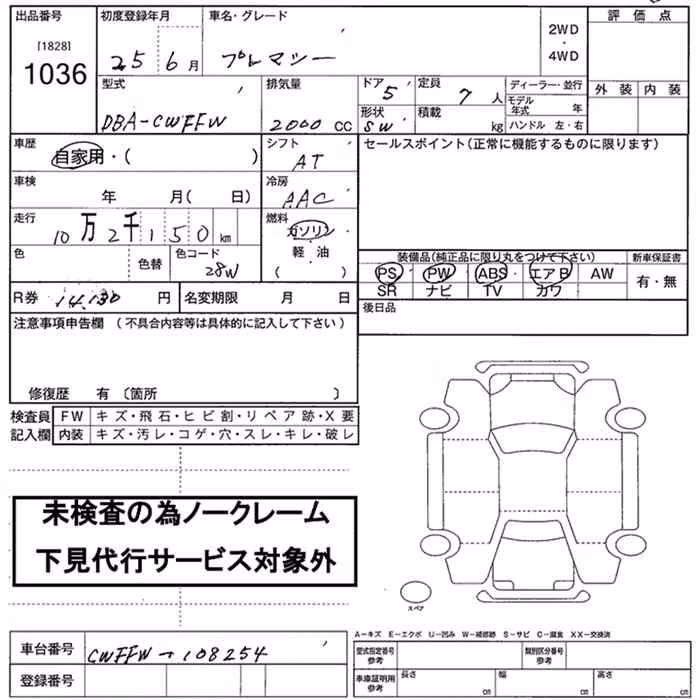 出品番号 初度登録年月 車名・グレード 2WD ・ 4WD 評価点
[1828]
1036 25 6月 プレマシー
型式 排気量 ドア 5 定員 7人 ディーラー・並行 外装 内装
DBA-CWFFW 2000 CC 形状 SW 積載 kg モデル年式 年
ハンドル 左・右
車歴 自家用・( ) シフト AT セールスポイント(正常に機能するものに限ります)
車検 年 月( 日) 冷房 AAC
走行 10万2千150km 燃料 ガソリン
軽・油
( )
色 色替 色コード 28W
装備品(純品に限り丸をつけて下さい) 新車保証書
PS PW ABS エアB AW 有・無
SR ナビ TV カワ
R券 14,130 円 名変期限 月 日 後日品
注意事項申告欄 (不具合内容等は具体的に記入して下さい)
修復歴 有〔箇所 〕
検査員 FW キズ・飛石・ヒビ割・リペア跡・X要
記入欄 内装 キズ・汚レ・コゲ・穴・スレ・キレ・破レ
未検査の為ノークレーム
下見代行サービス対象外
スペア
A-キズ E-エクボ U-凹み W-補修跡 S-サビ C-腐食 XX-交換済
車台番号 CWFFW-108254 型式指定番号 参考 類別区分番号 参考
登録番号 車庫証明用 参考 長さ cm 幅 cm 高さ cm